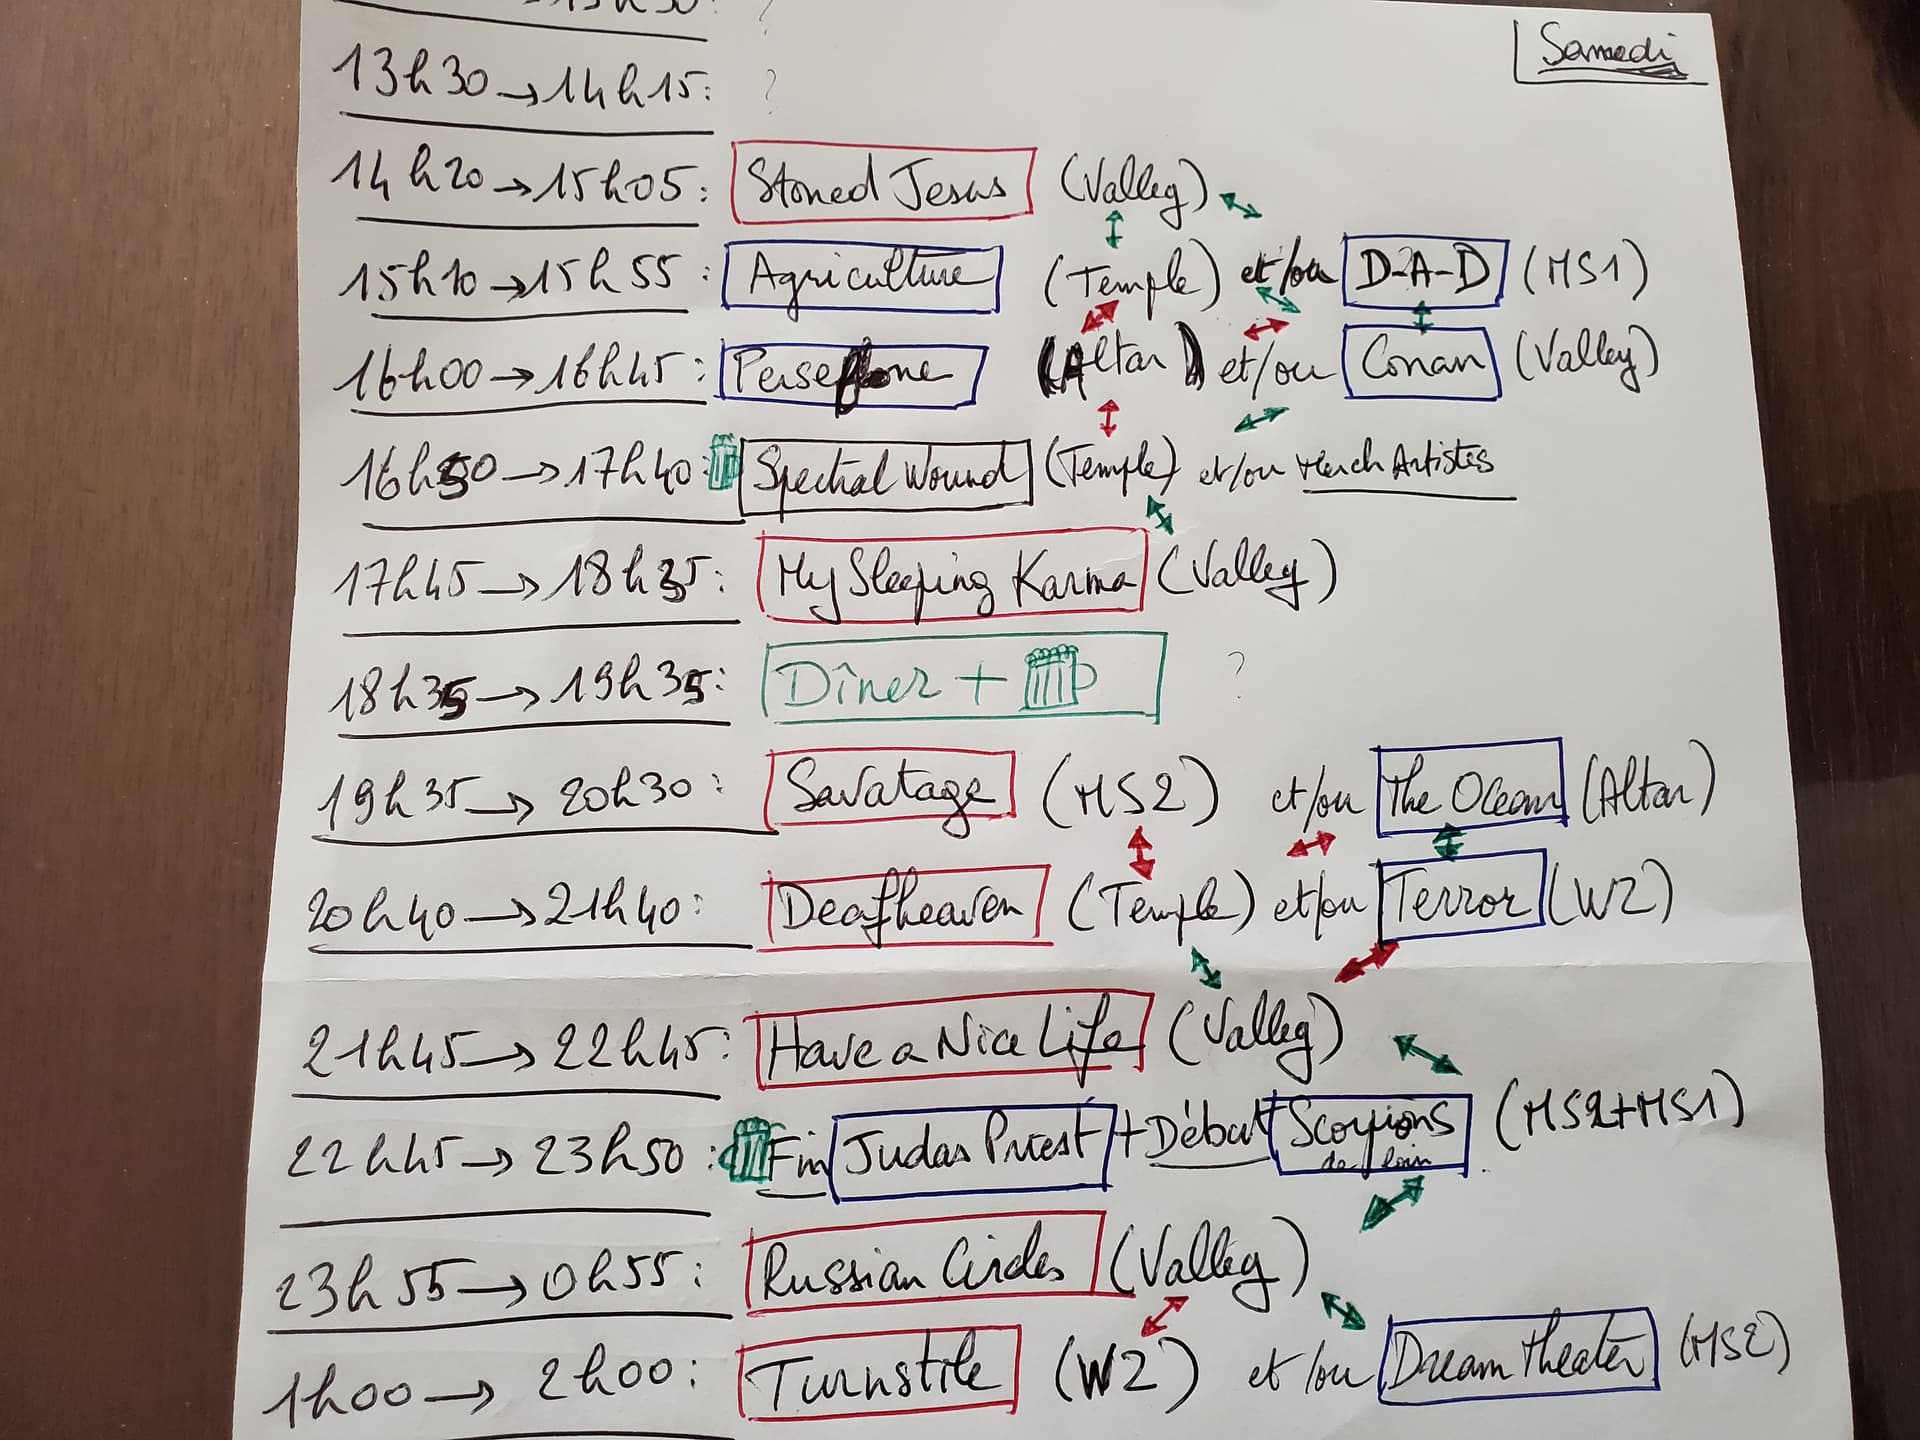 Samedi
13h30 → 14h15: ?
14h20 → 15h05: Stoned Jesus (Valley)
15h10 → 15h55: Agriculture (Temple) et/ou D-A-D (MS1)
16h00 → 16h45: Persefone (Altar) et/ou Conan (Valley)
16h50 → 17h40: Spectral Wound (Temple) et/ou Merch Artistes
17h45 → 18h35: My Sleeping Karma (Valley)
18h35 → 19h35: Dîner + ?
19h35 → 20h30: Savatage (MS2) et/ou The Ocean (Altar)
20h40 → 21h40: Deafheaven (Temple) et/ou Terror (W2)
21h45 → 22h45: Have a Nice Life (Valley)
22h45 → 23h50: Fin Judas Priest + Début Scorpions de loin (MS2+MS1)
23h55 → 0h55: Russian Circles (Valley)
1h00 → 2h00: Turnstile (W2) et/ou Dream Theater (MS2)